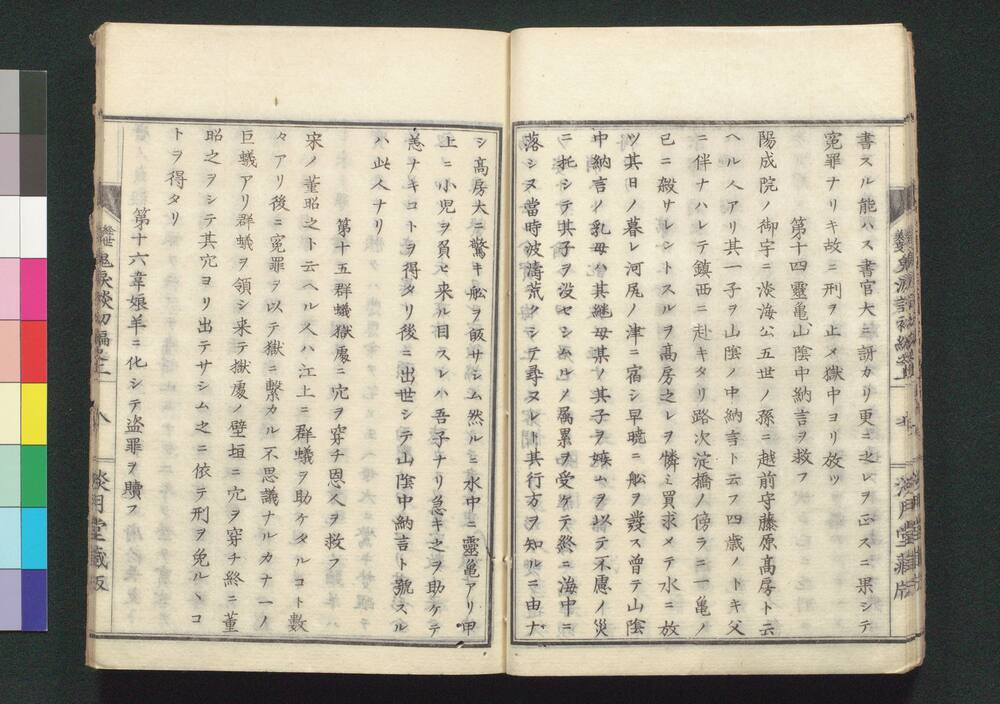 書スル能ハス書官大ニ訝カリ更ニ之レヲ正スニ果シテ
寃罪ナリキ故ニ刑ヲ止メ獄中ヨリ放ツ
第十四靈亀山陰中納言ヲ救フ
陽成院ノ御宇ニ淡海公五世ノ孫ニ越前守藤原髙房ト云
ヘル人アリ其一子ヲ山陰ノ中納言ト云フ四歳ノトキ父
ニ伴ナハレテ鎮西ニ赴キタリ路次淀橋ノ傍ラニ一亀ノ
已ニ殺サレントスルヲ髙房之レヲ憐ミ買求メテ水ニ放
ツ其日ノ暮レ河尻ノ津ニ宿シ早暁ニ舩ヲ發ス曾テ山陰
中納言ノ乳母ハ其継母某ノ其子ヲ嫉ムヲ以テ不慮ノ災
ニ托シテ其子ヲ没セシムルノ属累ヲ受ケテ終ニ海中ニ
落シヌ當時波濤荒クシテ尋ヌレト其行方ヲ知ルニ由ナ
シ髙房大ニ驚キ舩ヲ皈サシム然ルニ水中ニ靈亀アリ甲
上ニ小児ヲ負ヒ来ル目スレハ吾子ナリ急キ之ヲ助ケテ
恙ナキコトヲ得タリ後ニ出世シテ山陰中納言ト號スル
ハ此人ナリ
第十五群蟻獄處ニ穴ヲ穿チ恩人ヲ救フ
宋ノ董昭之ト云ヘル人ハ江上ニ群蟻ヲ助ケタルコト數
々アリ後ニ寃罪ヲ以テ獄ニ繫カル不思議ナルカナ一ノ
巨蟻アリ群蟻ヲ領シ来テ獄處ノ壁垣ニ穴ヲ穿チ終ニ董
昭之ヲシテ其穴ヨリ出テサシム之ニ依テ刑ヲ免ルヽコ
トヲ得タリ
第十六韋娘羊ニ化シテ盗罪ヲ贖フ
八
談月堂蔵版